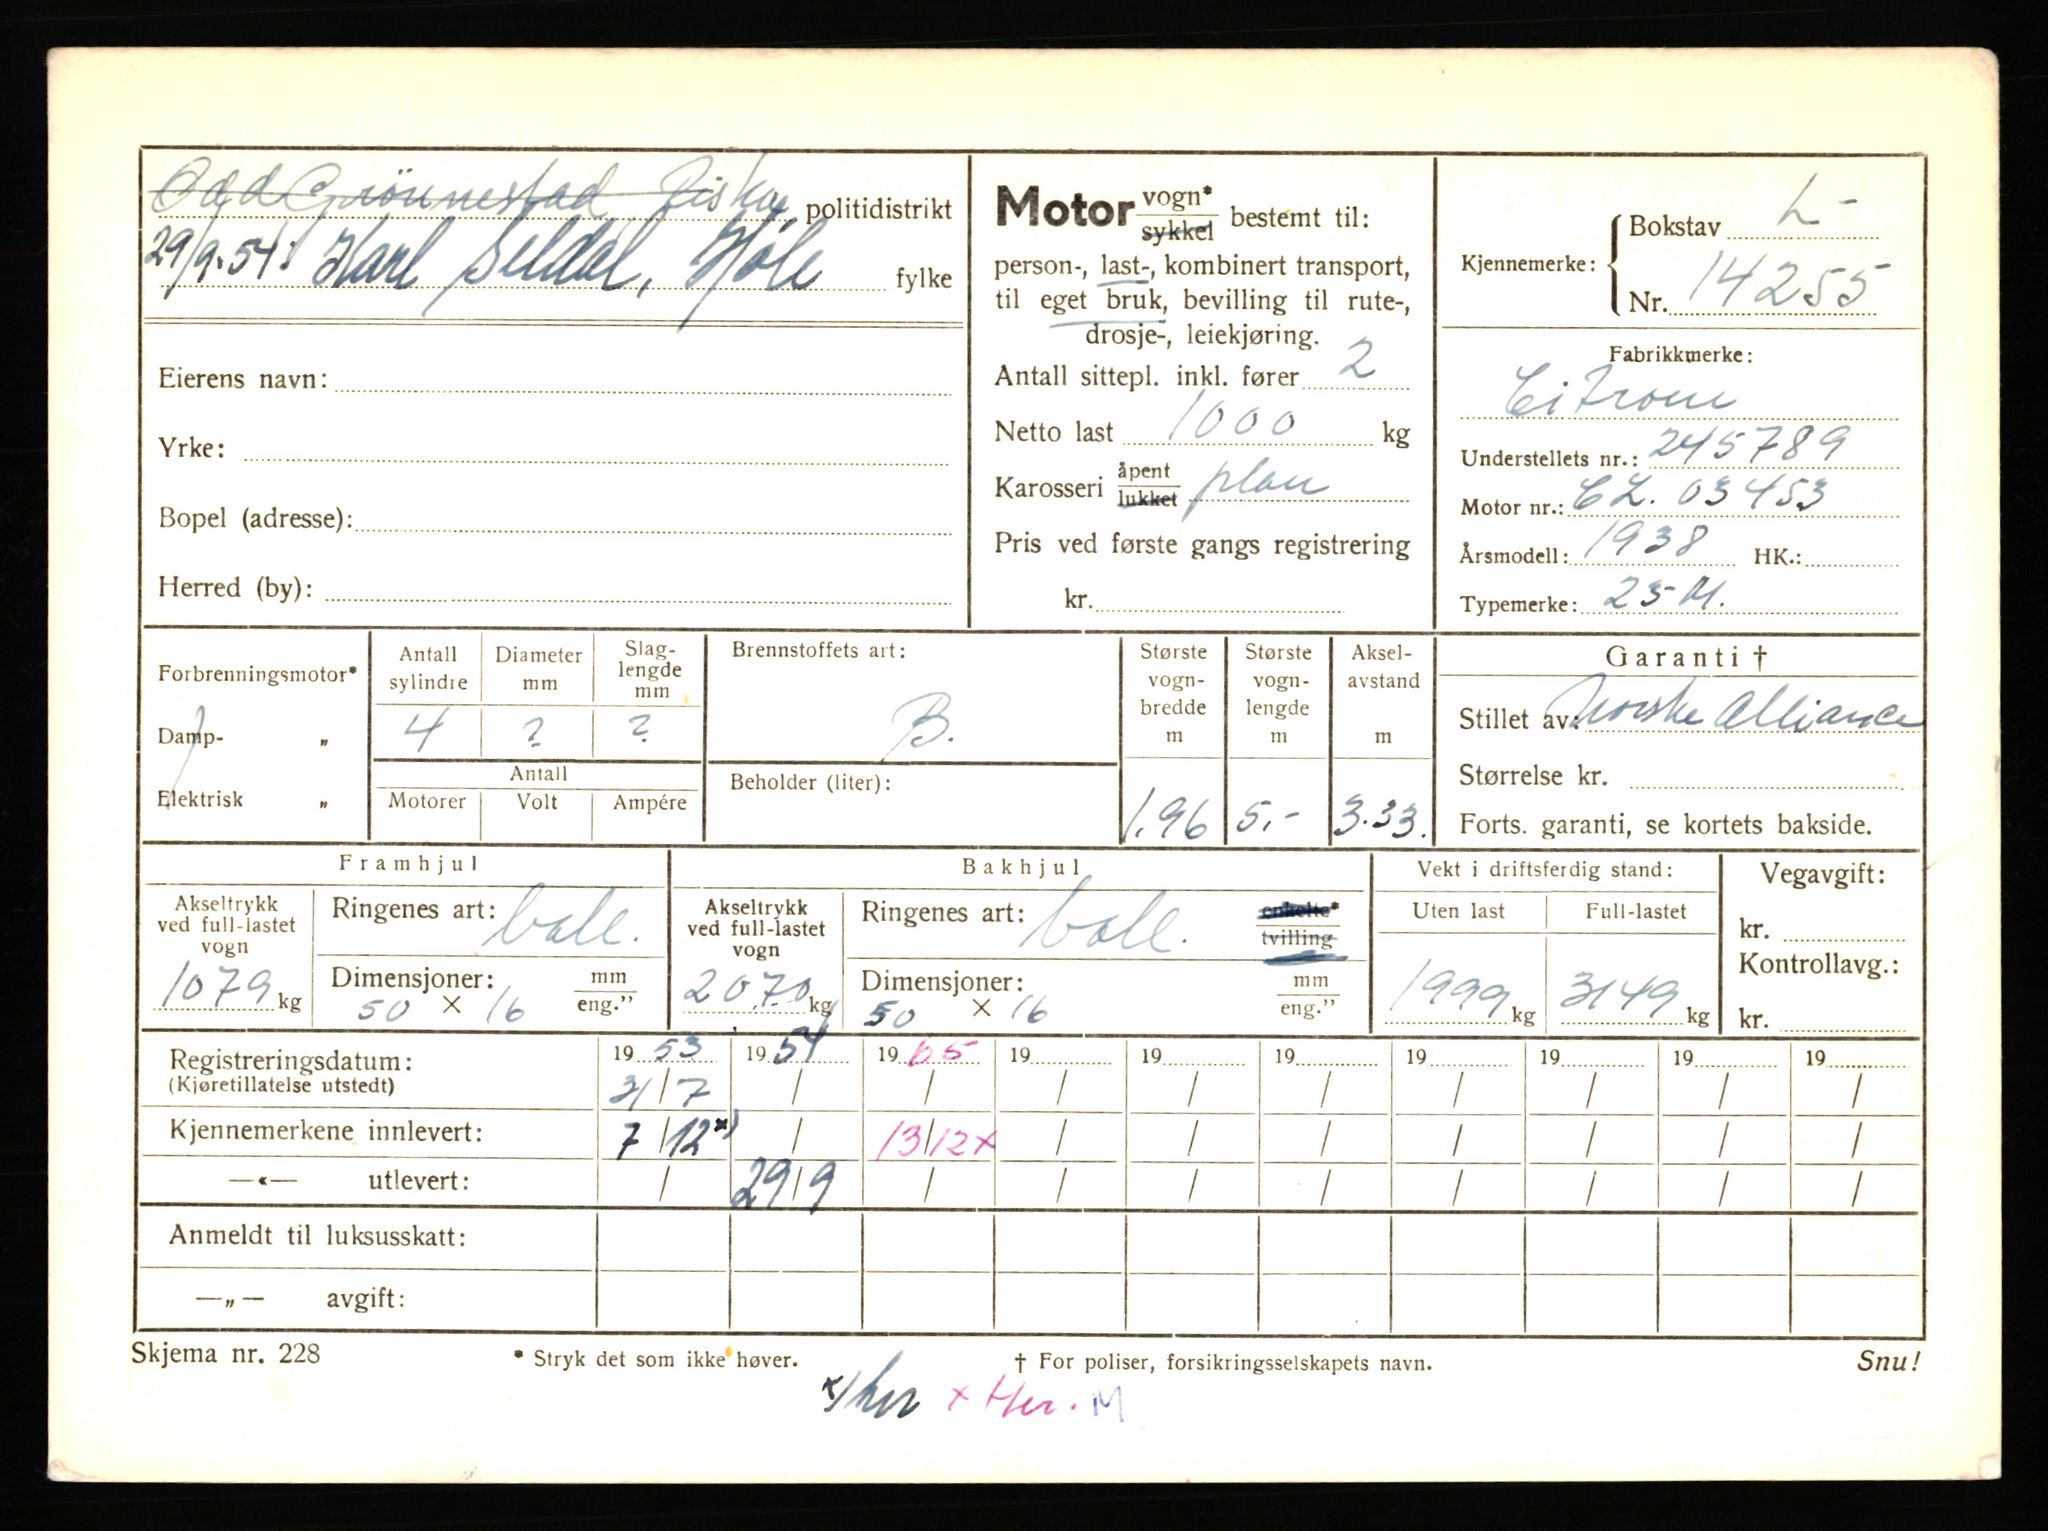 Odd Grönnestad, Fiskå politidistrikt
29/9.54: Karl Seldal, Høle fylke
Eierens navn:
Yrke:
Bopel (adresse):
Herred (by):
Motor vogn* sykkel bestemt til:
person-, last-, kombinert transport,
til eget bruk, bevilling til rute-,
drosje-, leiekjøring.
Antall sittepl. inkl. fører 2
Netto last 1000 kg
Karosseri åpent lukket plan
Pris ved første gangs registrering
kr.
Kjennemerke: Bokstav L-
Nr. 14255
Fabrikkmerke:
Citroen
Understellets nr.: 245789
Motor nr.: CL. 03453
Årsmodell: 1938 HK.:
Typemerke: 23-M.
Forbrenningsmotor*
Damp- „
Elektrisk „
Antall sylindre 4
Diameter mm ?
Slag-lengde mm ?
Antall
Motorer Volt Ampére
Brennstoffets art:
B.
Beholder (liter):
Største vogn-bredde m 1,96
Største vogn-lengde m 5,-
Aksel-avstand m 3.33.
Garanti †
Stillet av: Norske Alliance
Størrelse kr.
Forts. garanti, se kortets bakside.
Framhjul
Akseltrykk ved full-lastet vogn
1079 kg
Ringenes art: ball.
Dimensjoner: mm eng."
50 × 16
Bakhjul
Akseltrykk ved full-lastet vogn
2070 kg
Ringenes art: ball. enkelte* tvilling
Dimensjoner: mm eng."
50 × 16
Vekt i driftsferdig stand:
Uten last Full-lastet
1999 kg 3149 kg
Vegavgift:
kr.
Kontrollavg.:
kr.
Registreringsdatum: 19 53 19 54 19 65 19 19 19 19 19 19 19
(Kjøretillatelse utstedt) 31/7 / / / / / / / / /
Kjennemerkene innlevert: 7/12 x) / 13/12 x / / / / / / /
—«— utlevert: / 29/9 / / / / / / / /
Anmeldt til luksusskatt:
—„— avgift:
Skjema nr. 228 * Stryk det som ikke høver. † For poliser, forsikringsselskapets navn. Snu!
x) her x Her. M